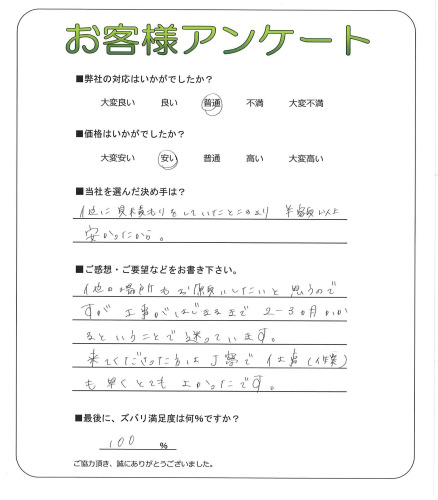 お客様アンケート
■弊社の対応はいかがでしたか？
大変良い 良い 普通 不満 大変不満
■価格はいかがでしたか？
大変安い 安い 普通 高い 大変高い
■当社を選んだ決め手は？
他に見積もりをしていたところより 半額以上
安かったから。
■ご感想・ご要望などをお書き下さい。
他の場所もお願いしたいと思うので
すが 工事がはじまるまで 2-3ヵ月かか
るということで迷っています。
来てくださった方は丁寧で 仕事(作業)
も早くとてもよかったです。
■最後に、ズバリ満足度は何%ですか？
100 %
ご協力頂き、誠にありがとうございました。